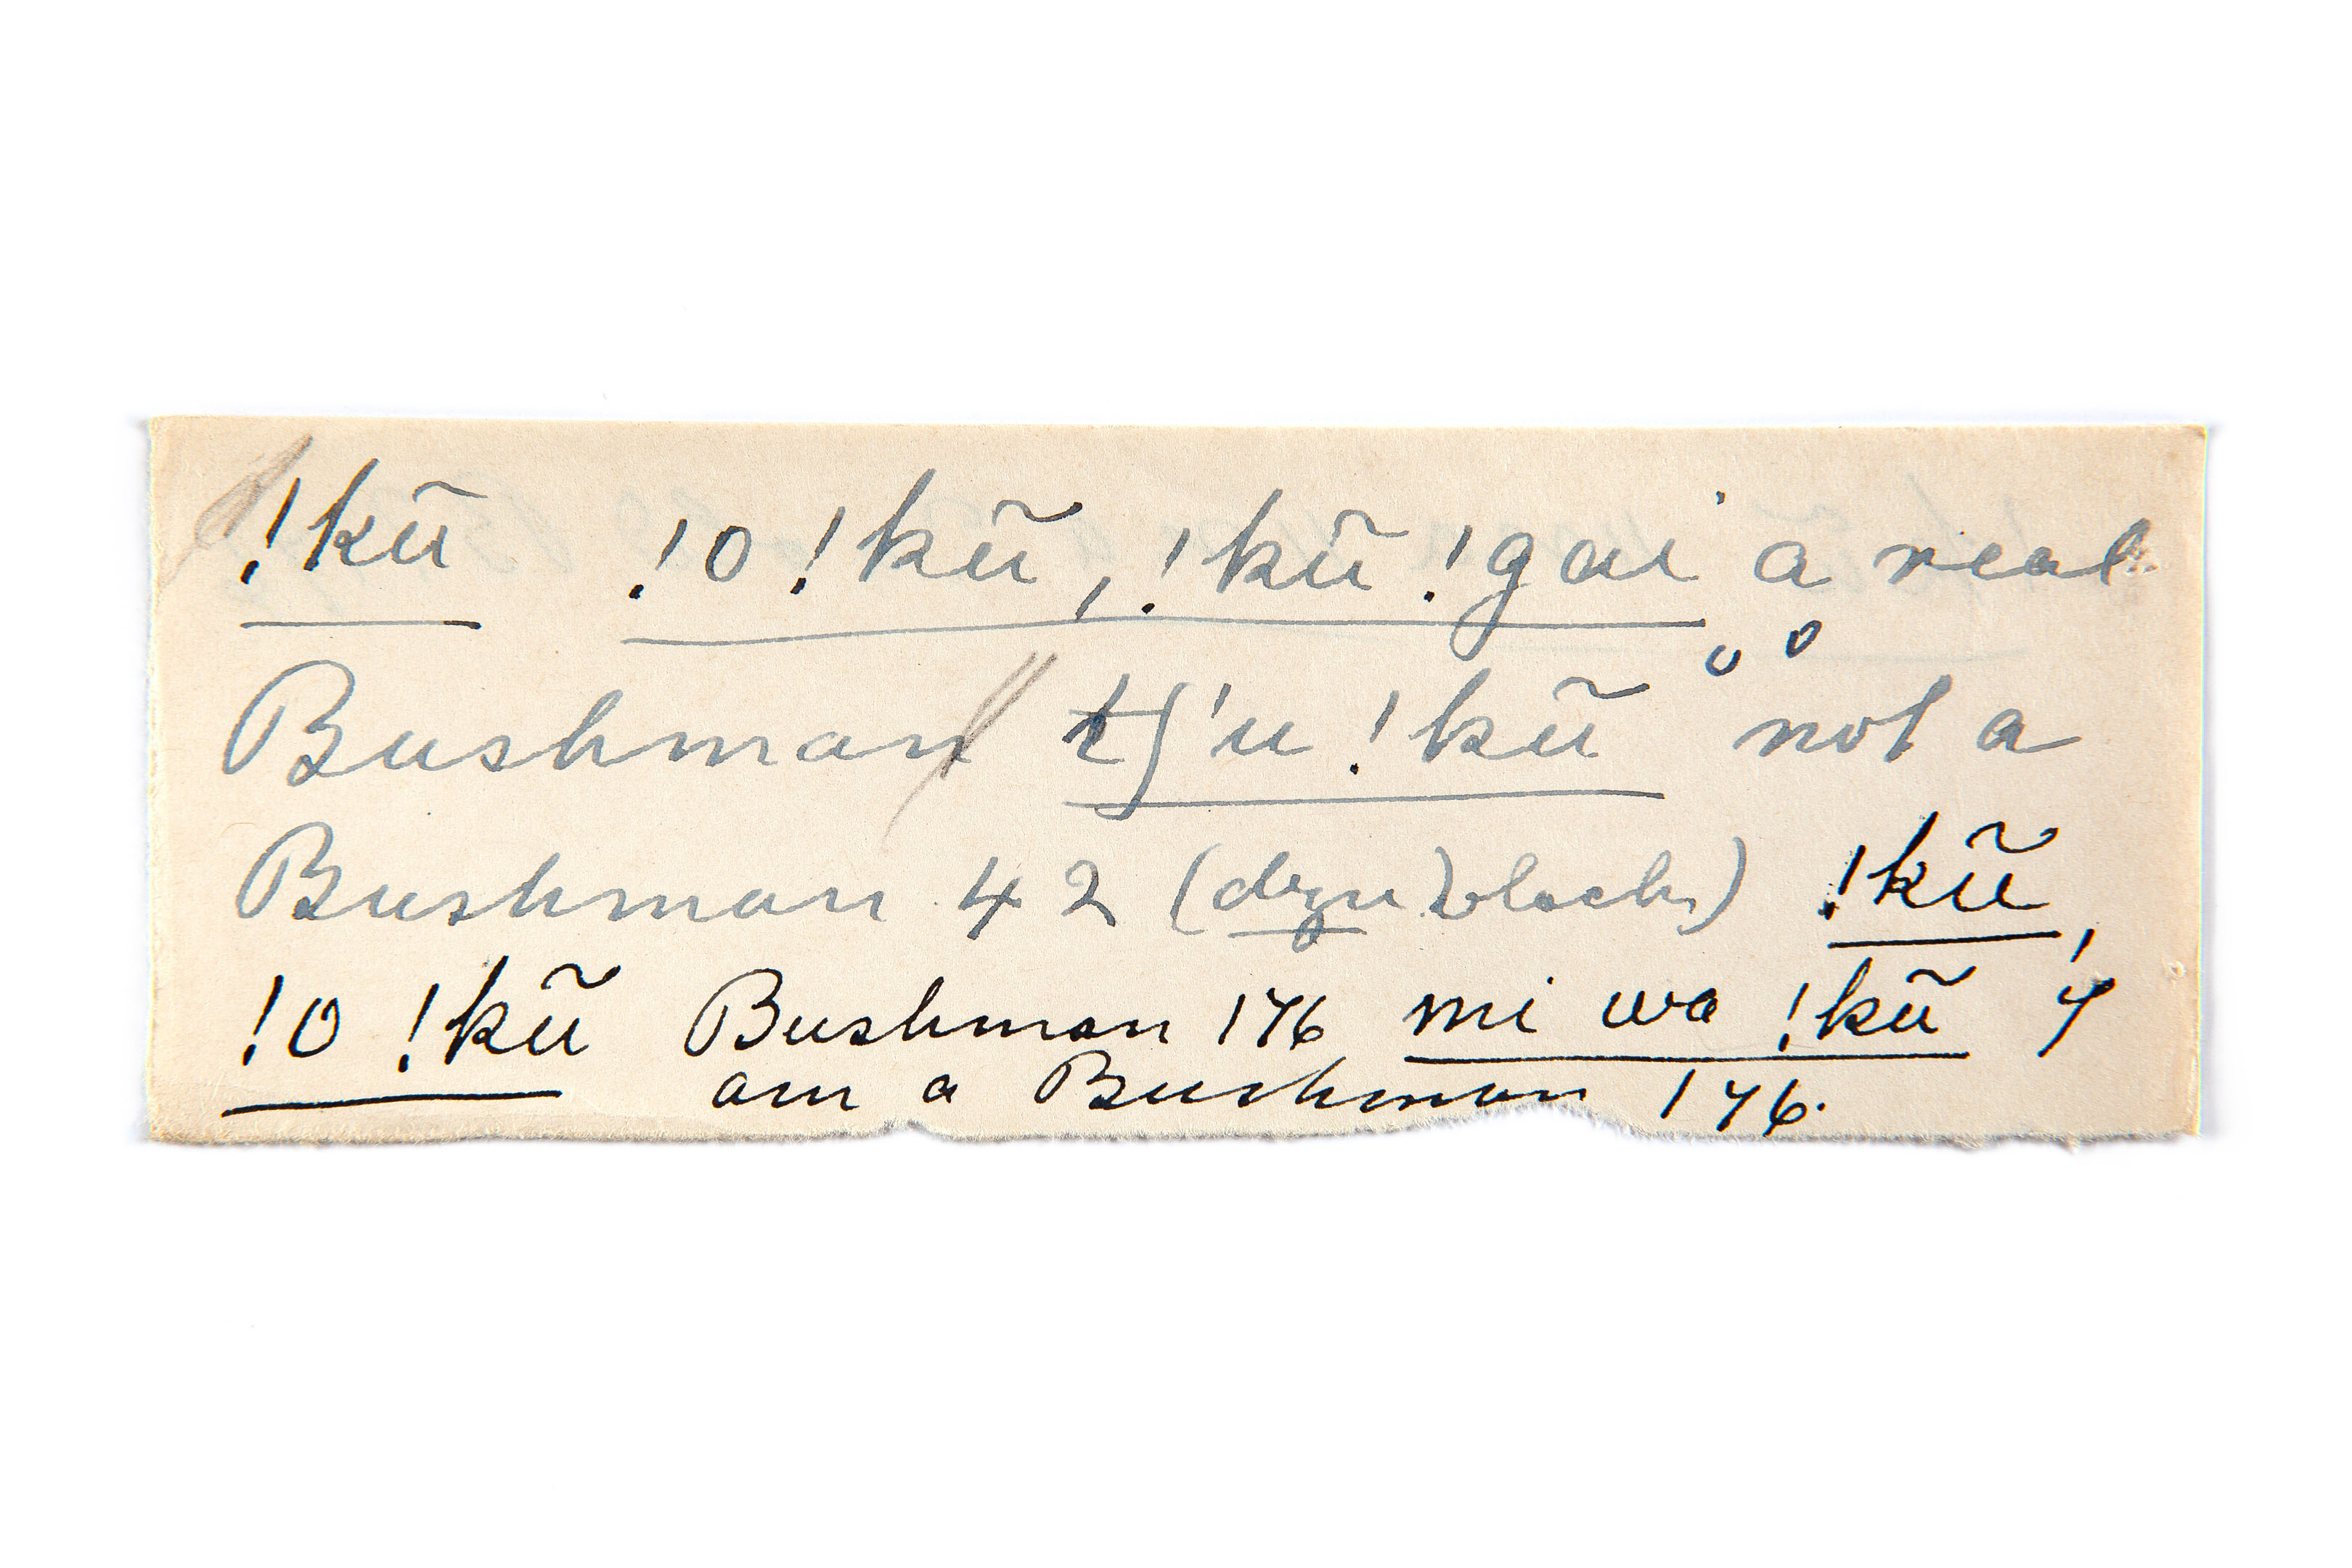 !kũ !o !kũ, !kũ !gai a real
Bushman tʃ'u !kũ not a
Bushman 42 (dzu) !kũ,
!o !kũ Bushman 176 mi wa !kũ I
am a Bushman 176.